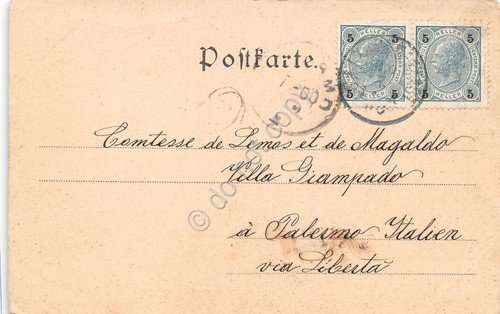 5 HELLER 5
5 HELLER 5
5 5
5 5
Postkarte.
Comtesse de Lemos et de Magaldo
Villa Giampado
à Palermo Italien
via Libertà